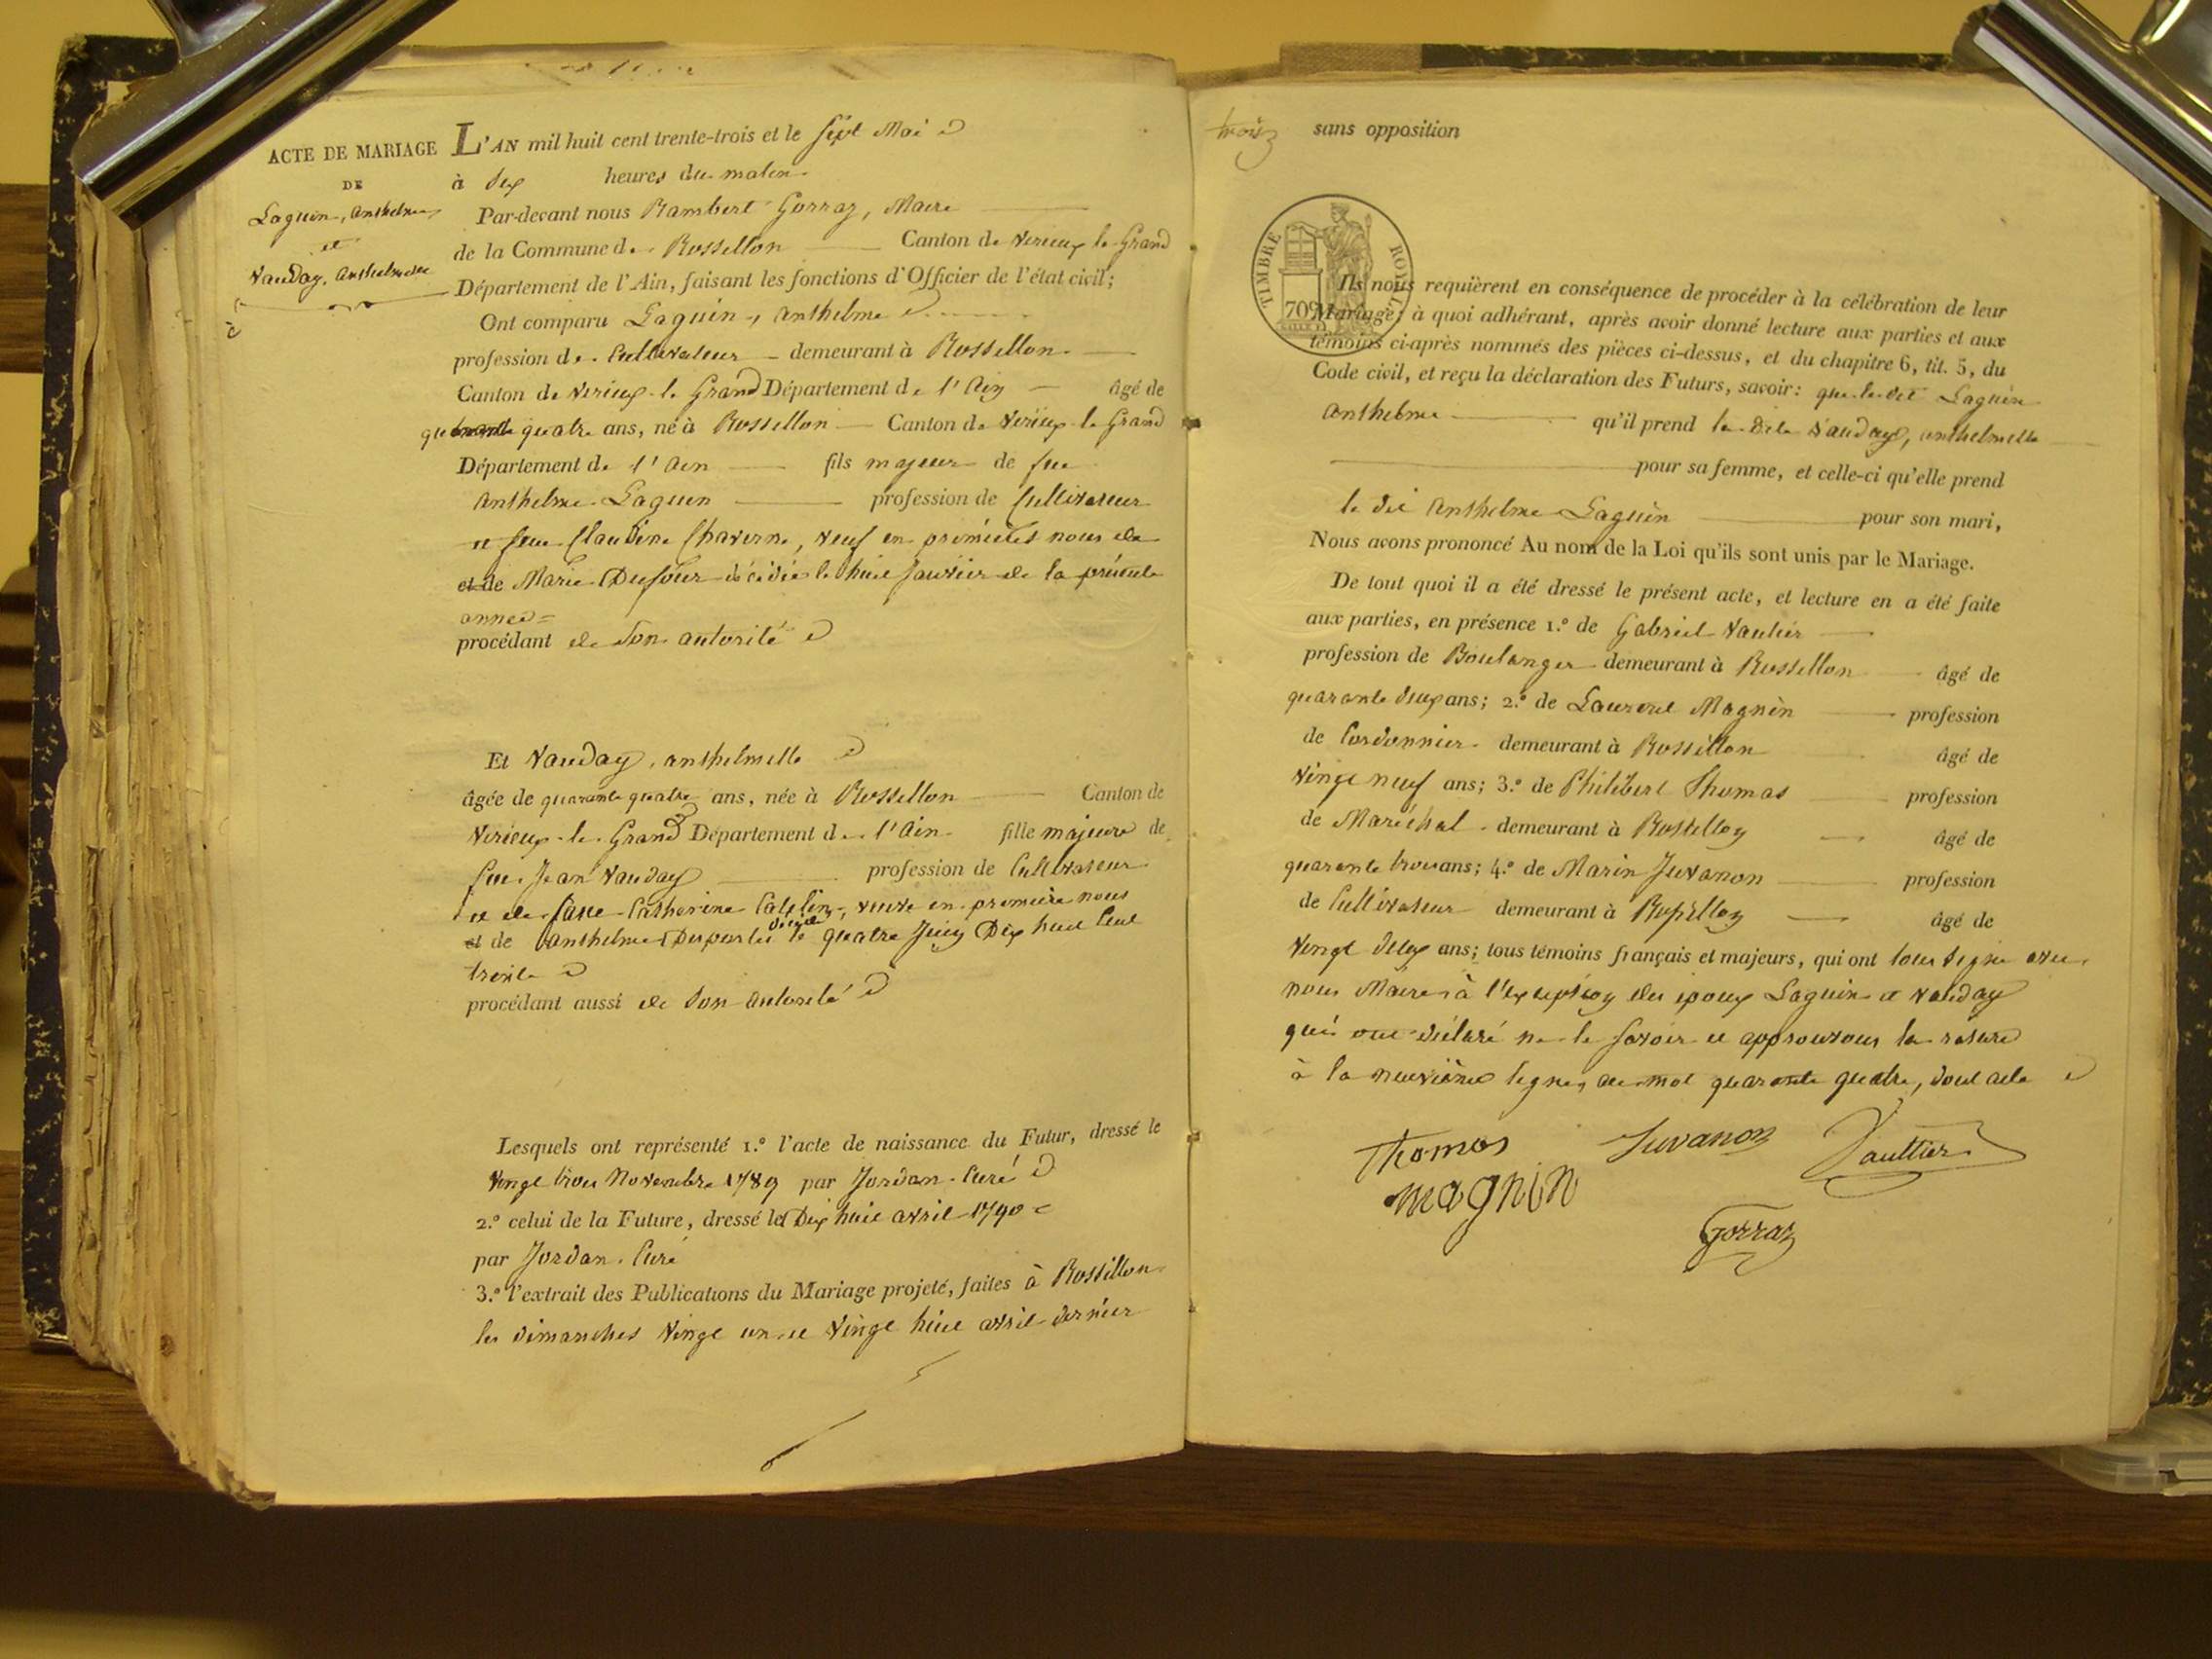 ACTE DE MARIAGE
DE
Laguin, anthelme
et
Vauday, anthelmette
L'AN mil huit cent trente-trois et le sept Mai
à dix heures du matin
Par-devant nous Rambert Gorraz, Maire
de la Commune de Rossillon Canton de Virieux le Grand
Département de l'Ain, faisant les fonctions d'Officier de l'état civil;
Ont comparu Laguin, anthelme
profession de Cultivateur demeurant à Rossillon
Canton de Virieux le Grand Département de l'Ain âgé de
quatre ans, né à Rossillon Canton de Virieux le Grand
Département de l'Ain fils majeur de feu
anthelme Laguin profession de Cultivateur
et feue Claudine Chaverne, veuf en premières nous de
et de Marie Dufour décédée le huit Janvier de la présente
année
procédant de son autorité
Et Vauday, anthelmette
âgée de quarante quatre ans, née à Rossillon Canton de
Virieux le Grand Département de l'Ain fille majeure de
feu Jean Vauday profession de Cultivateur
et de Catherine veuve en première nous
et de anthelme décédé le quatre Juin Dix huit Cent
trente
procédant aussi de son autorité
Lesquels ont représenté 1.º l'acte de naissance du Futur, dressé le
vingt trois Novembre 1789 par Jordan Curé
2.º celui de la Future, dressé le Dix huit avril 1790
par Jordan Curé
3.º l'extrait des Publications du Mariage projeté, faites à Rossillon
les dimanches vingt un et vingt huit avril dernier
sans opposition
TIMBRE ROYAL
70
Ils nous requièrent en conséquence de procéder à la célébration de leur
Mariage; à quoi adhérant, après avoir donné lecture aux parties et aux
témoins ci-après nommés des pièces ci-dessus, et du chapitre 6, tit. 5, du
Code civil, et reçu la déclaration des Futurs, savoir: que le dit Laguin
anthelme qu'il prend la dite Vauday, anthelmette
pour sa femme, et celle-ci qu'elle prend
le dit anthelme Laguin pour son mari,
Nous avons prononcé Au nom de la Loi qu'ils sont unis par le Mariage.
De tout quoi il a été dressé le présent acte, et lecture en a été faite
aux parties, en présence 1.º de Gabriel Vautier
profession de Boulanger demeurant à Rossillon âgé de
quarante deux ans; 2.º de Laurent Magnin profession
de Cordonnier demeurant à Rossillon âgé de
vingt neuf ans; 3.º de Philibert Thomas profession
de Maréchal demeurant à Rossillon âgé de
quarante trois ans; 4.º de Marin Juvanon profession
de Cultivateur demeurant à Rossillon âgé de
vingt deux ans; tous témoins français et majeurs, qui ont tous signé avec
nous Maire à l'exception des époux Laguin et Vauday
qui ont déclaré ne le savoir et approuvons la rature
à la neuvième ligne, au mot quarante quatre, dont acte
Thomas Juvanon Vauttier
magnin
Gorraz